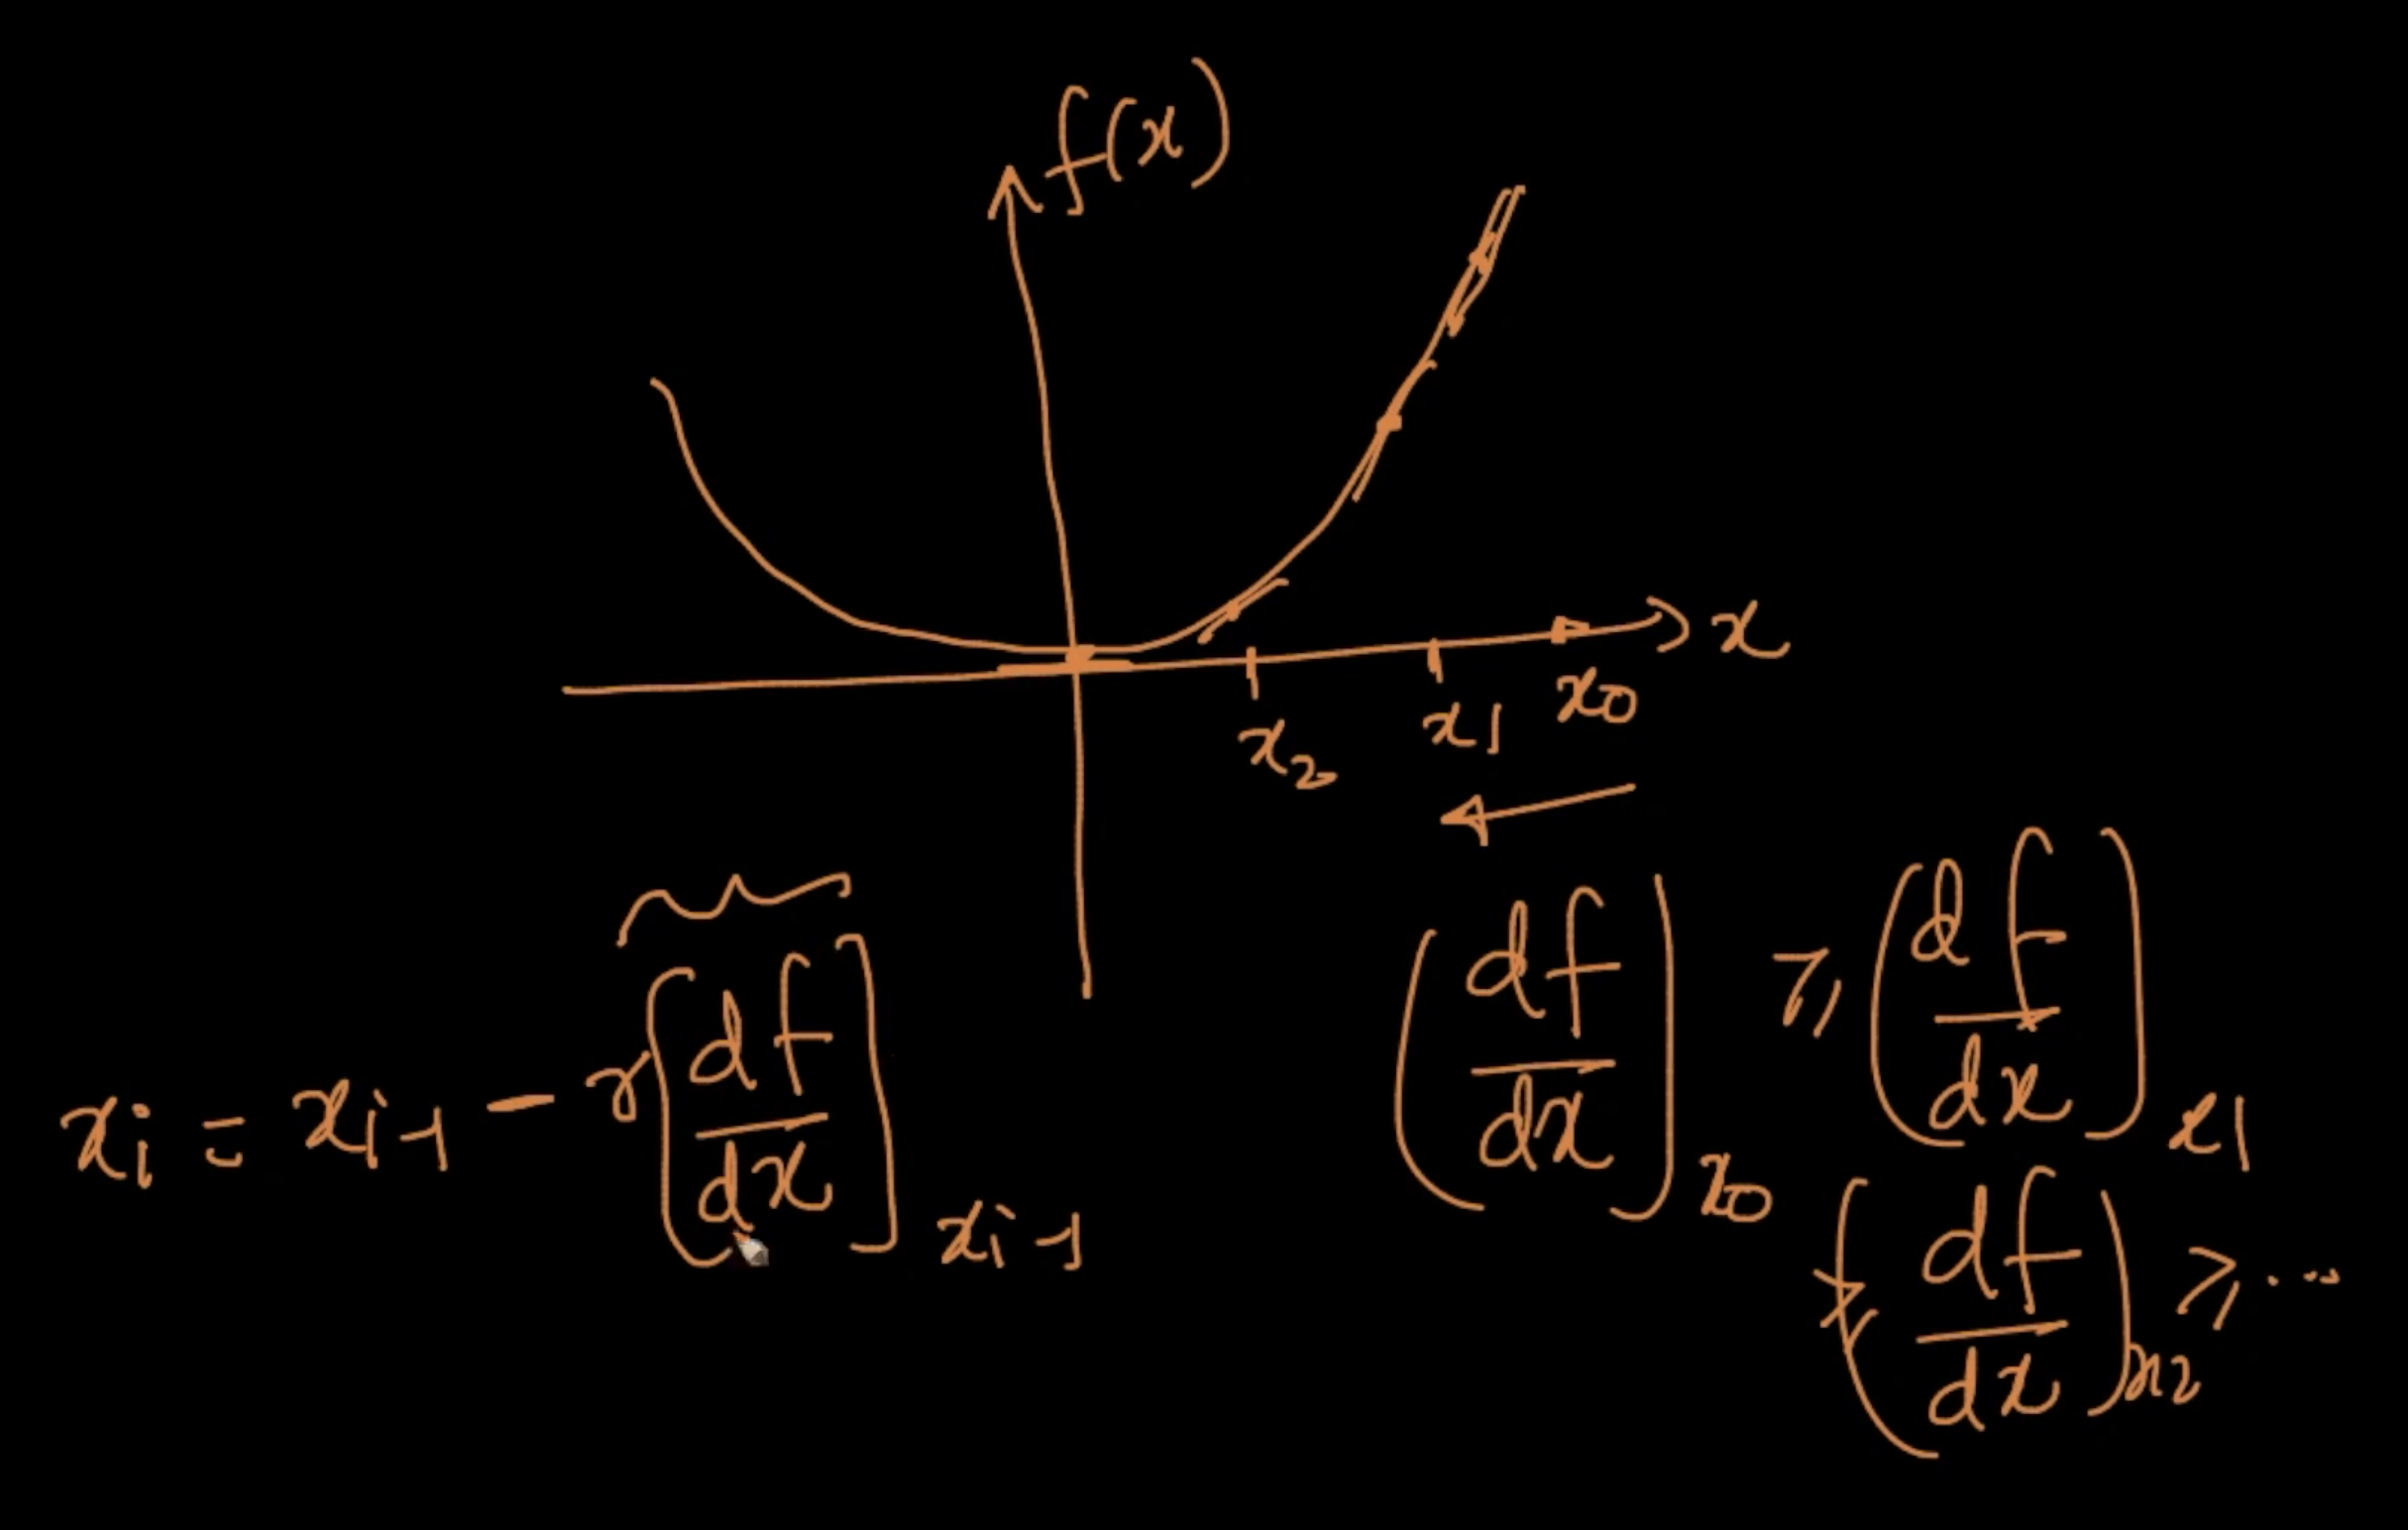 f(x)
x
x₂ x₁ x₀
xᵢ = xᵢ₋₁ - r[df/dx]xᵢ₋₁
(df/dx)x₀ ⩾ (df/dx)x₁
⩾ (df/dx)x₂ ⩾ ...